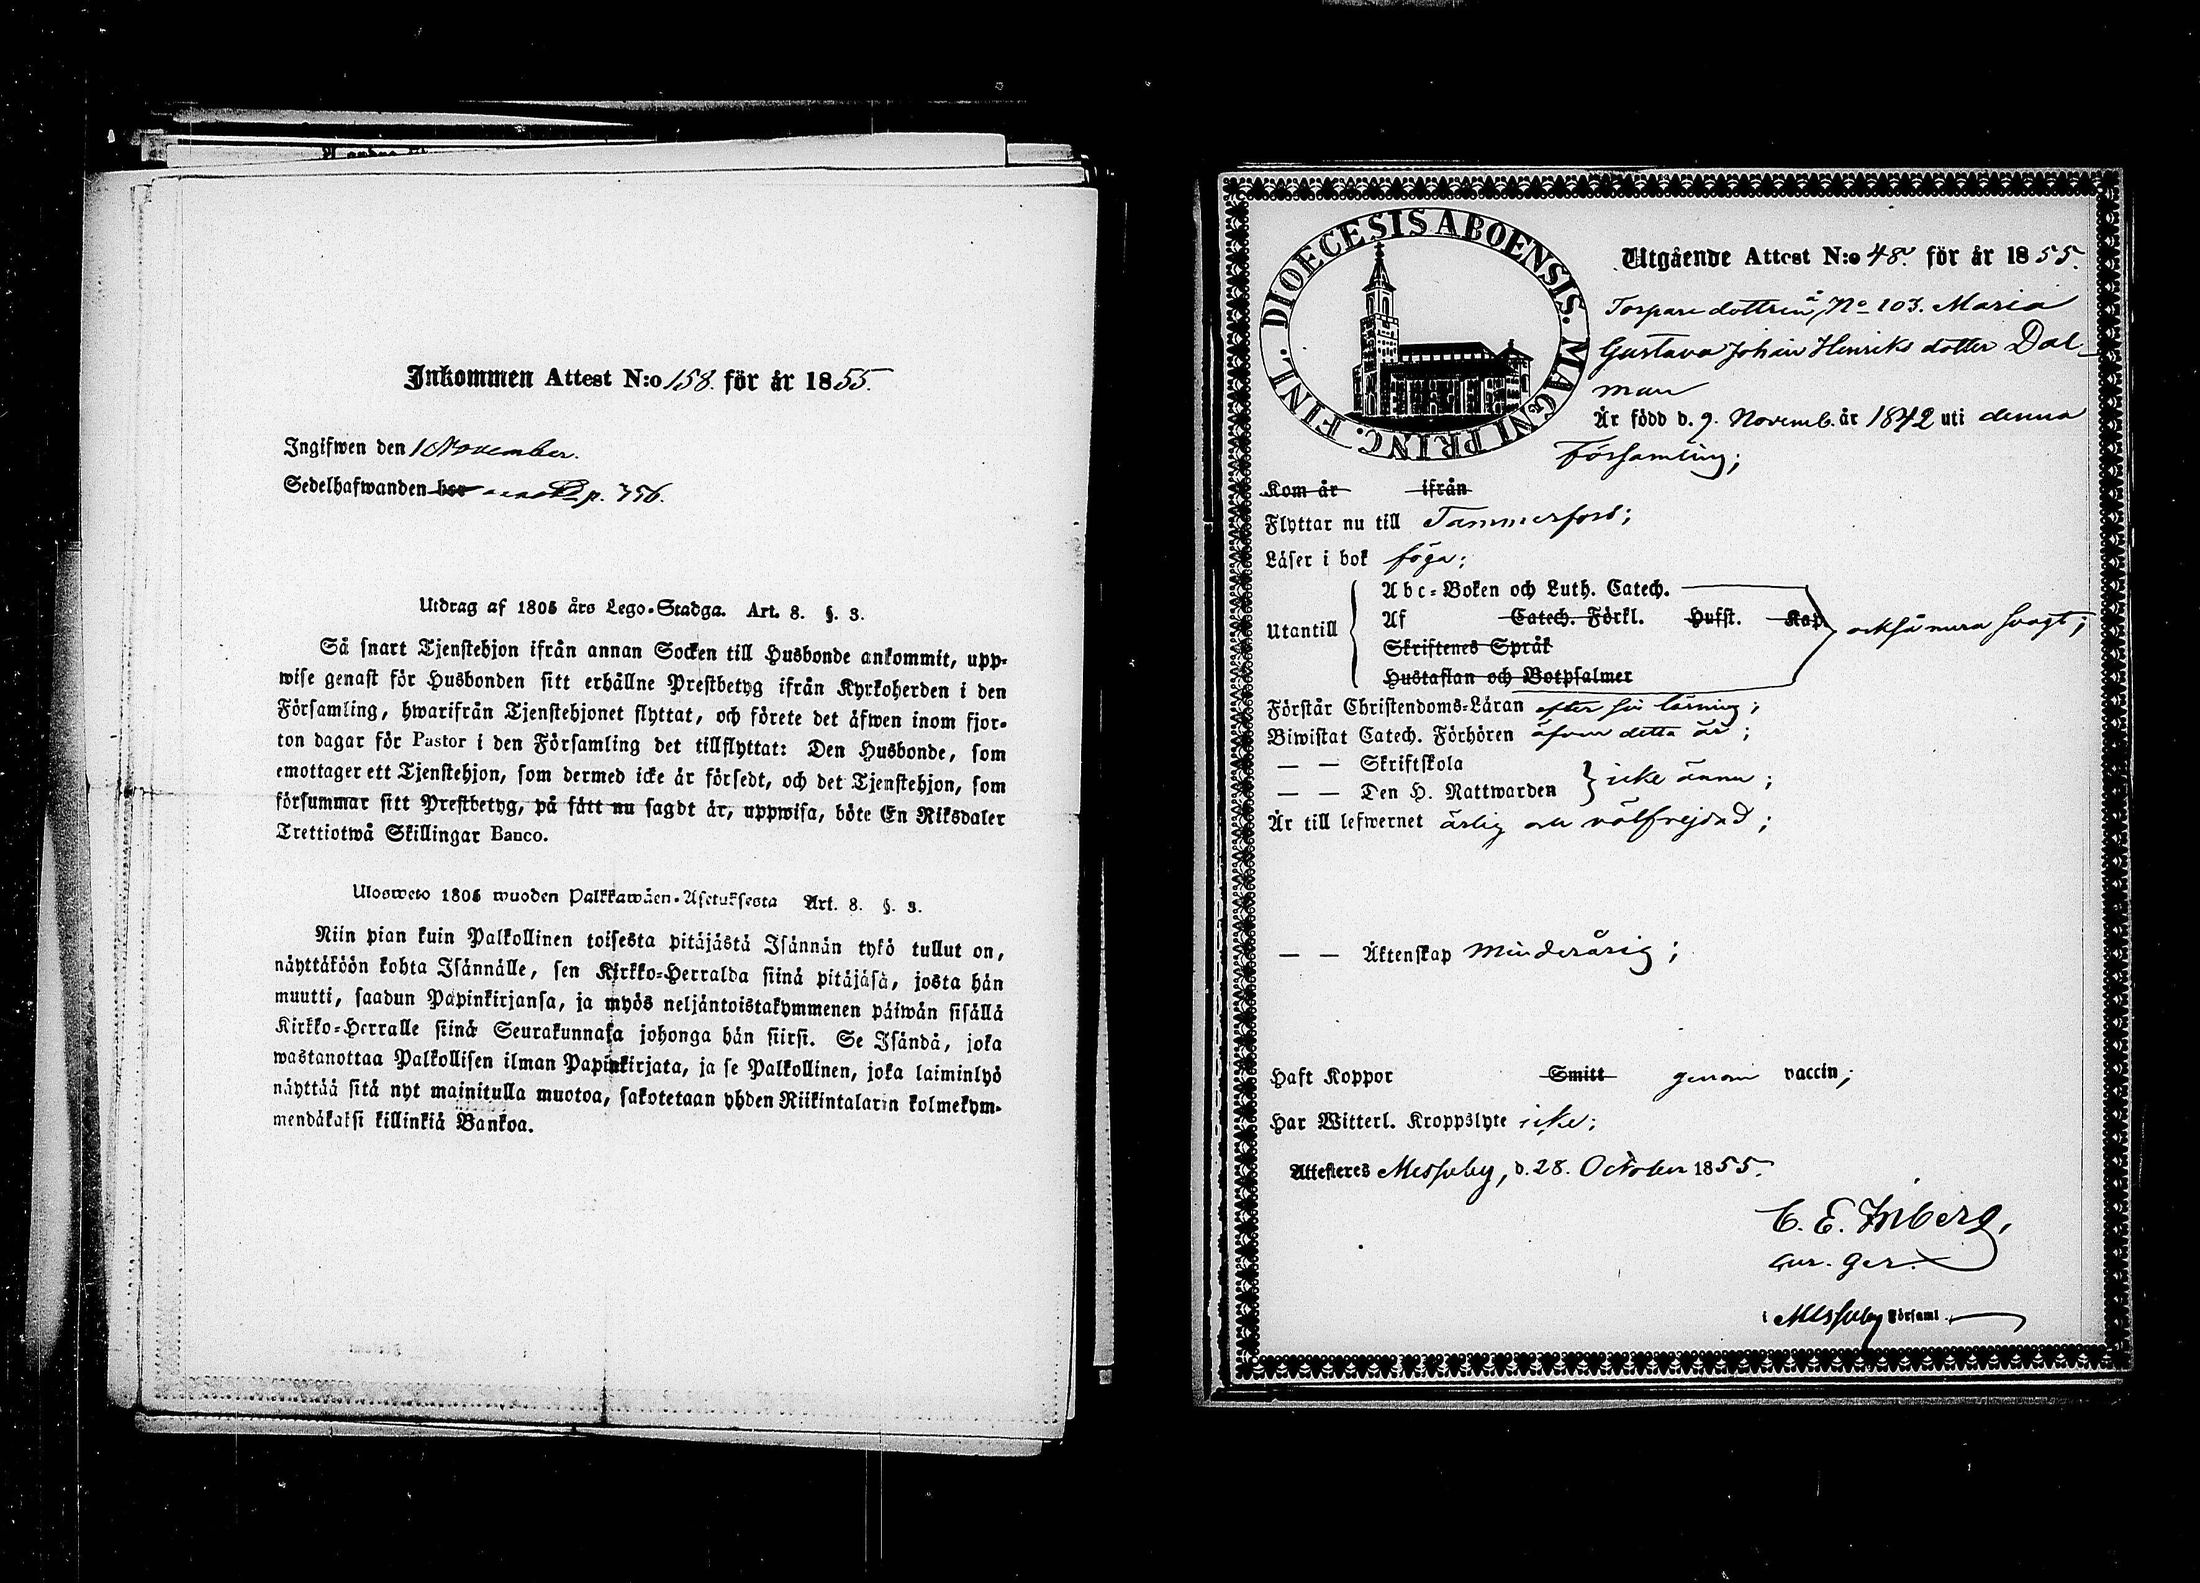 Inkommen Attest N:o 158. för år 1855.
Ingifwen den 1 November.
Sedelhafwanden bor p. 756.
Utdrag af 1805 års Lego-Stadga. Art. 8. §. 3.
Så snart Tjenstehjon ifrån annan Socken till Husbonde ankommit, upp-
wise genast för Husbonden sitt erhållne Prestbetyg ifrån Kyrkoherden i den
Församling, hwarifrån Tjenstehjonet flyttat, och förete det äfwen inom fjor-
ton dagar för Pastor i den Församling det tillflyttat: Den Husbonde, som
emottager ett Tjenstehjon, som dermed icke är försedt, och det Tjenstehjon, som
försummar sitt Prestbetyg, på sätt nu sagdt är, uppwisa, böte En Riksdaler
Trettiotwå Skillingar Banco.
Ulosweto 1805 wuoden Palkkawäen-Asetuksesta Art. 8. §. 3.
Niin pian kuin Palkollinen toisesta pitäjästä Isännän tykö tullut on,
näyttäköön kohta Isännälle, sen Kirkko-Herralda siinä pitäjäsä, josta hän
muutti, saadun Papinkirjansa, ja myös neljäntoistakymmenen päiwän sisällä
Kirkko-Herralle siinä Seurakunnasa johonga hän siirsi. Se Isändä, joka
wastanottaa Palkollisen ilman Papinkirjata, ja se Palkollinen, joka laiminlyö
näyttää sitä nyt mainitulla muotoa, sakotetaan yhden Riikintalarin kolmekym-
mendäkaksi killinkiä Bankoa.
DIOECESIS ABOENSIS. MAGNI PRINC. FINL.
Utgående Attest N:o 48. för år 1855.
Torpare dottren å No 103. Maria
Gustava Johan Henriks dotter Dal-
man
Är född d. 9. Novemb. år 1842 uti denna
Församling;
Kom år ifrån
Flyttar nu till Tammerfors;
Läser i bok föga;
Abc-Boken och Luth. Catech.
Utantill Af Catech. Förkl. Hufst. Kap. också mera svagt;
Skriftenes Språk
Hustaflan och Botpsalmer
Förstår Christendoms-Läran efter sin lärning;
Biwistat Catech. Förhören äfven detta år;
— — Skriftskola
— — Den H. Nattwarden } icke ännu;
Är till lefwernet ärlig och välfrejdad;
— — Äktenskap minderårig;
Haft Koppor Smitt genom vaccin;
Har Witterl. Kroppslyte icke;
Attesteres Messuby, d. 28. October 1855.
C. E. Friberg,
cur. ger.
i Messuby Församl.